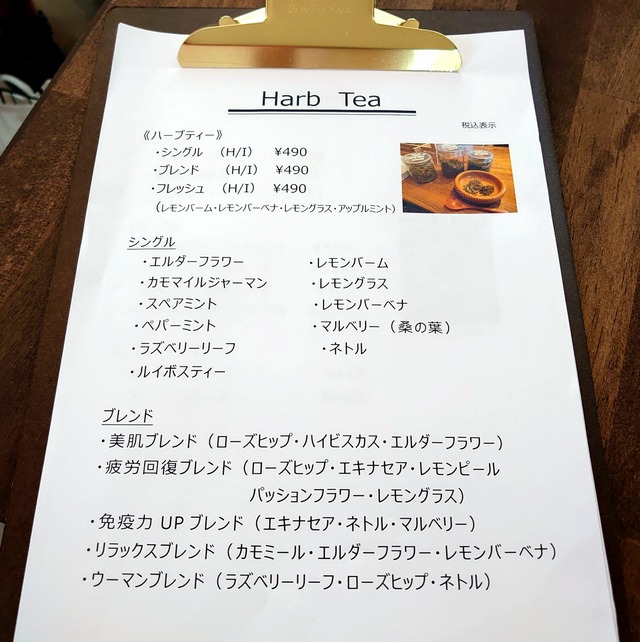 Harb Tea
税込表示
《ハーブティー》
・シングル （H/I） ¥490
・ブレンド （H/I） ¥490
・フレッシュ （H/I） ¥490
（レモンバーム・レモンバーベナ・レモングラス・アップルミント）
シングル
・エルダーフラワー ・レモンバーム
・カモマイルジャーマン ・レモングラス
・スペアミント ・レモンバーベナ
・ペパーミント ・マルベリー（桑の葉）
・ラズベリーリーフ ・ネトル
・ルイボスティー
ブレンド
・美肌ブレンド（ローズヒップ・ハイビスカス・エルダーフラワー）
・疲労回復ブレンド（ローズヒップ・エキナセア・レモンピール
パッションフラワー・レモングラス）
・免疫力 UP ブレンド（エキナセア・ネトル・マルベリー）
・リラックスブレンド（カモミール・エルダーフラワー・レモンバーベナ）
・ウーマンブレンド（ラズベリーリーフ・ローズヒップ・ネトル）